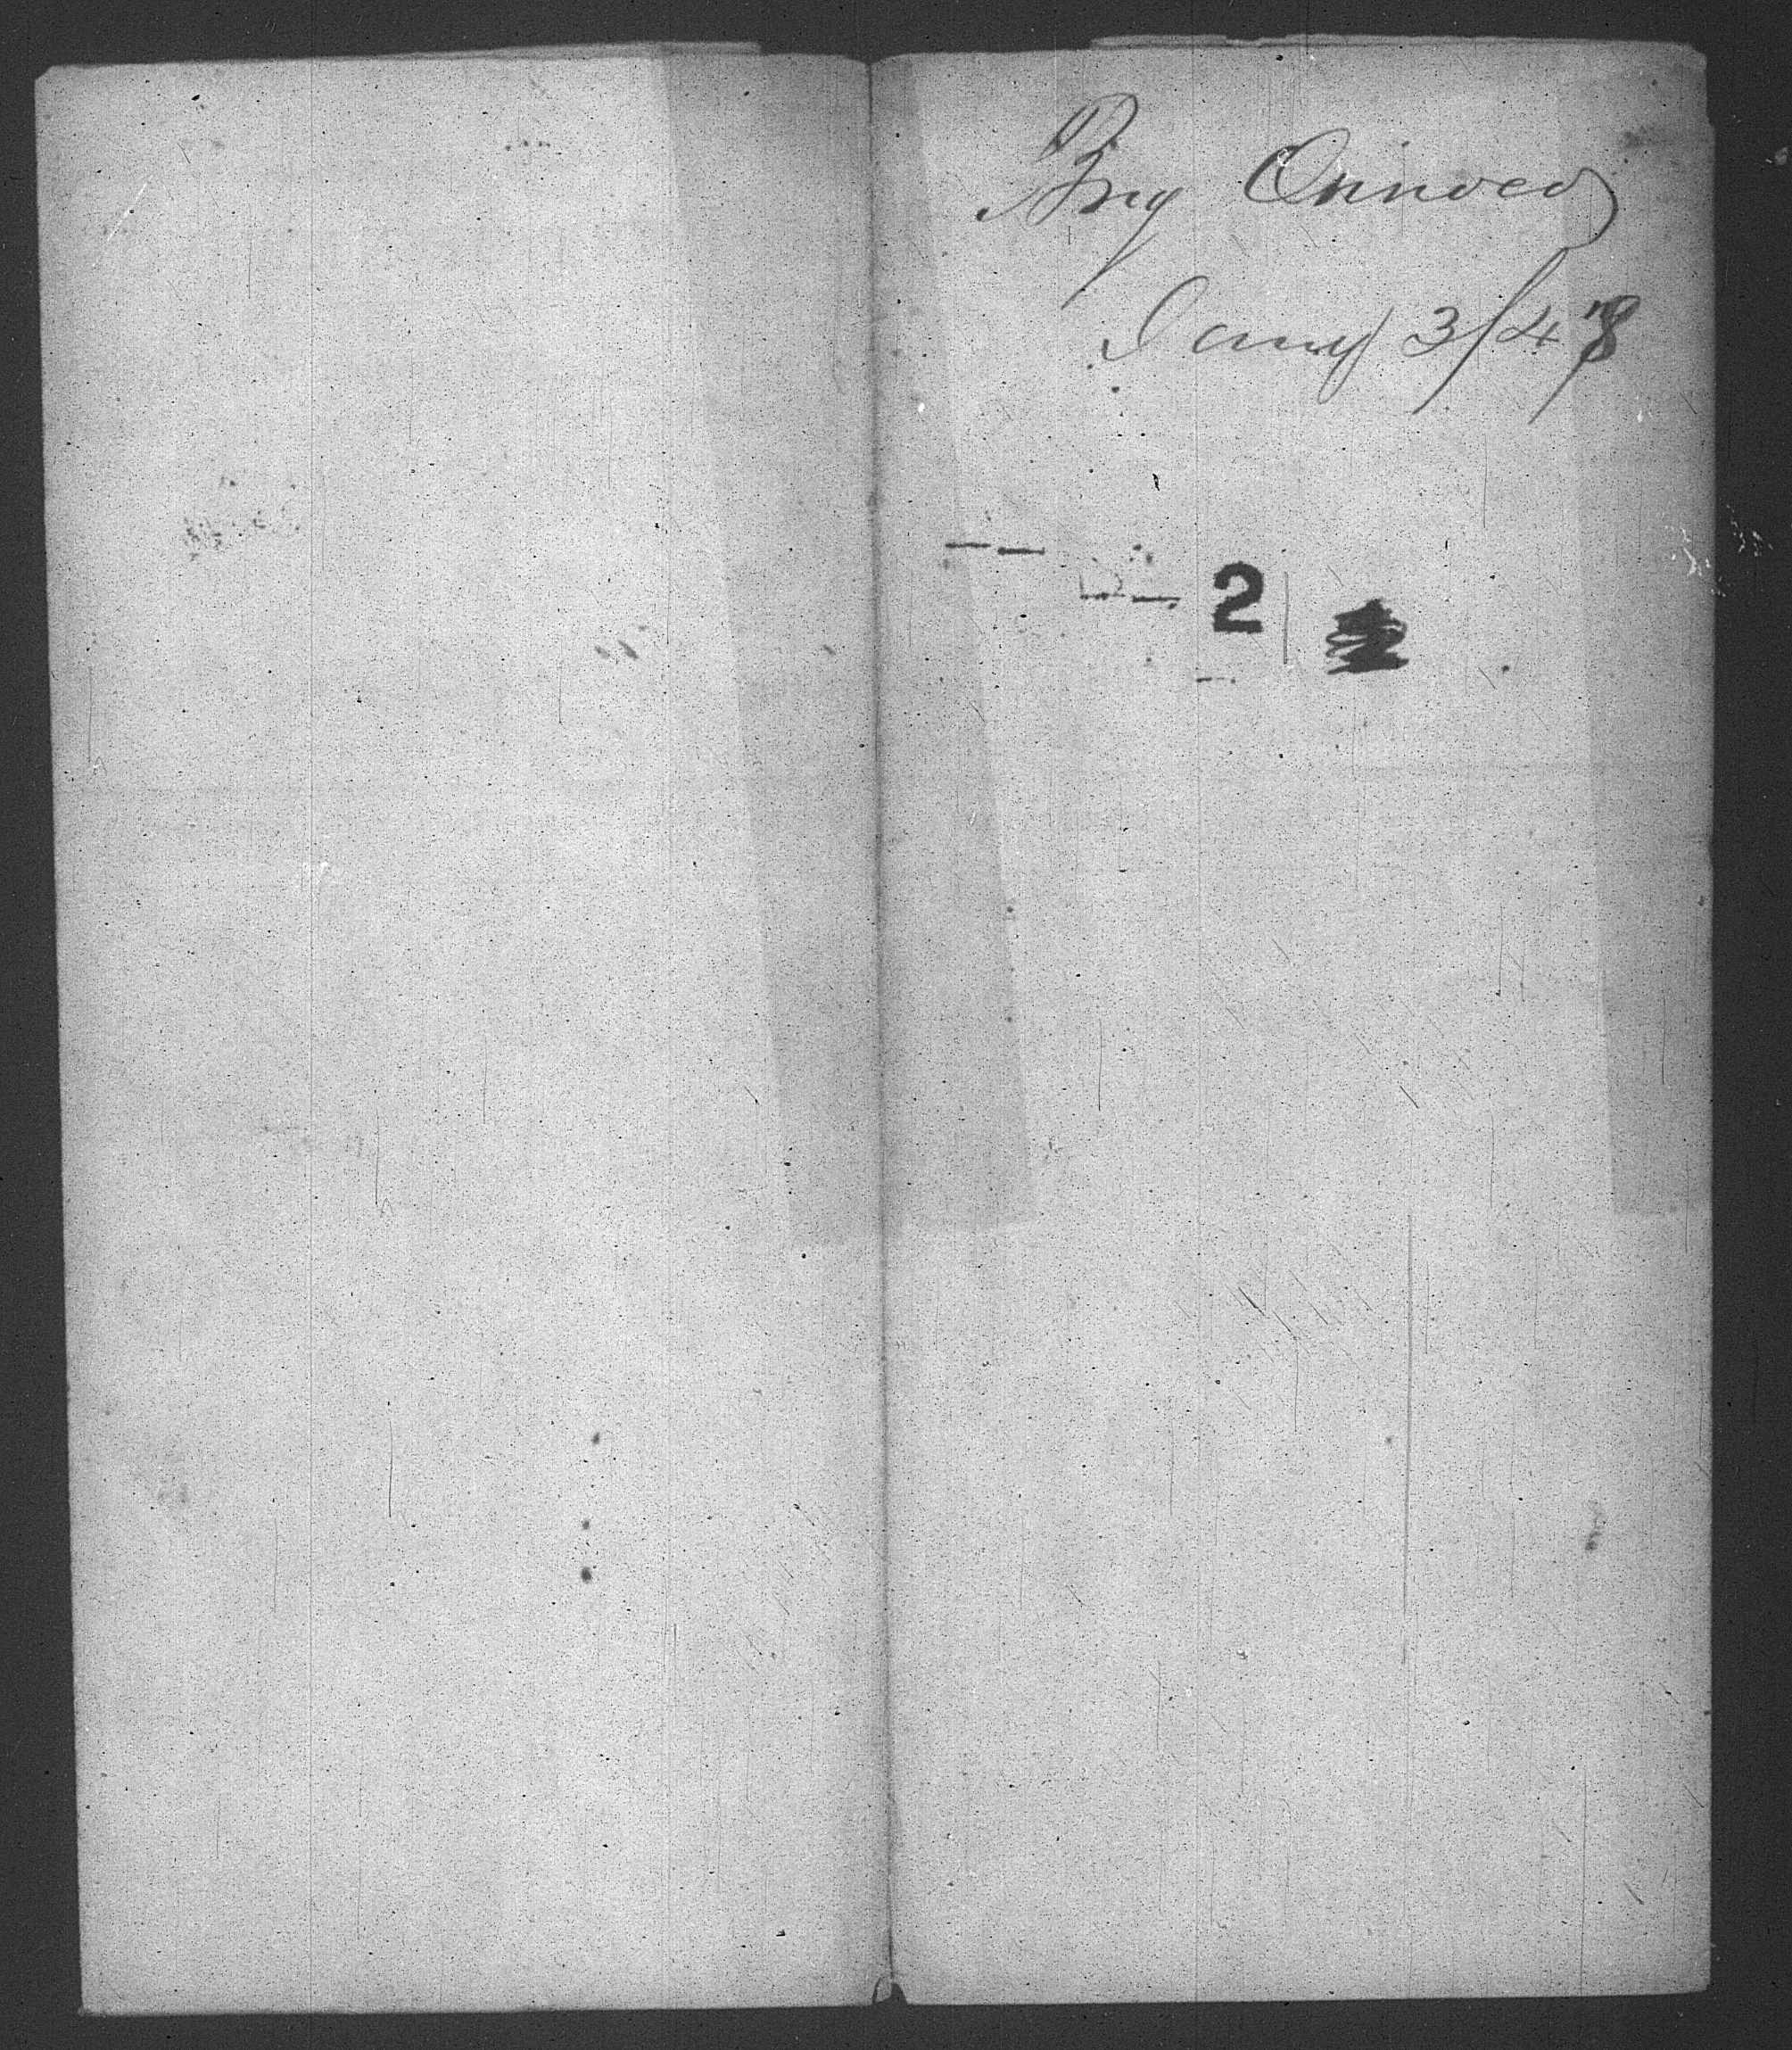 Brig Orinoco
Jany 3/48
2